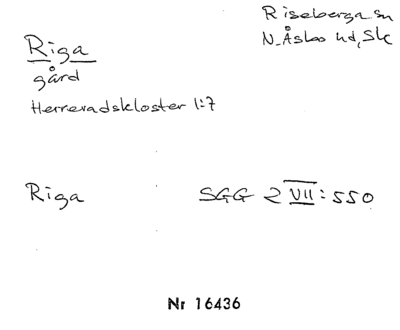 Riseberga sn
N. Åsbo hd, Sk
Riga
gård
Herrevadskloster 1:7
Riga SGG 2 VII: 550
Nr 16436